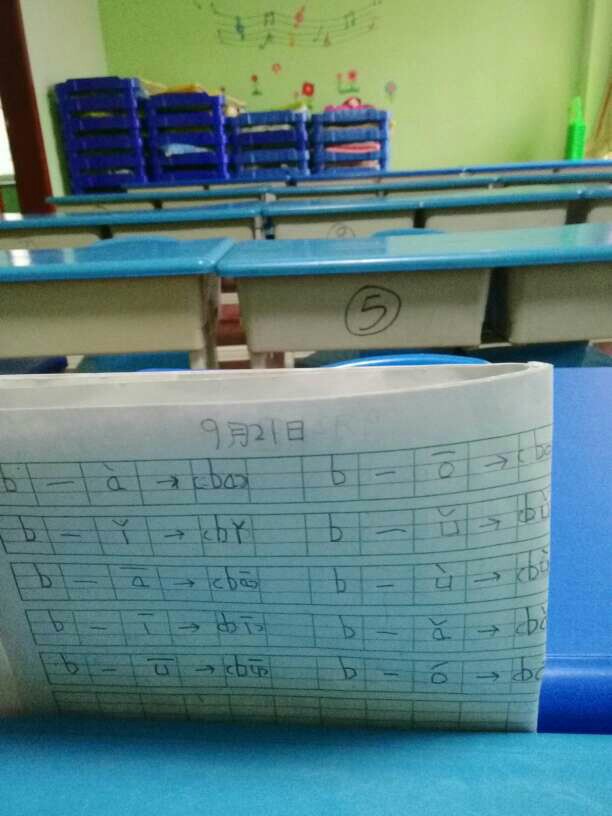 ⑤
9月21日
b — à → (bà) b — ō → (bō
b — ǐ → (bǐ b — ǔ → (bǔ
b — ā → (bā) b — ù → (bù
b — ī → (bī) b — ǎ → (bǎ
b — ū → (bū) b — ó →